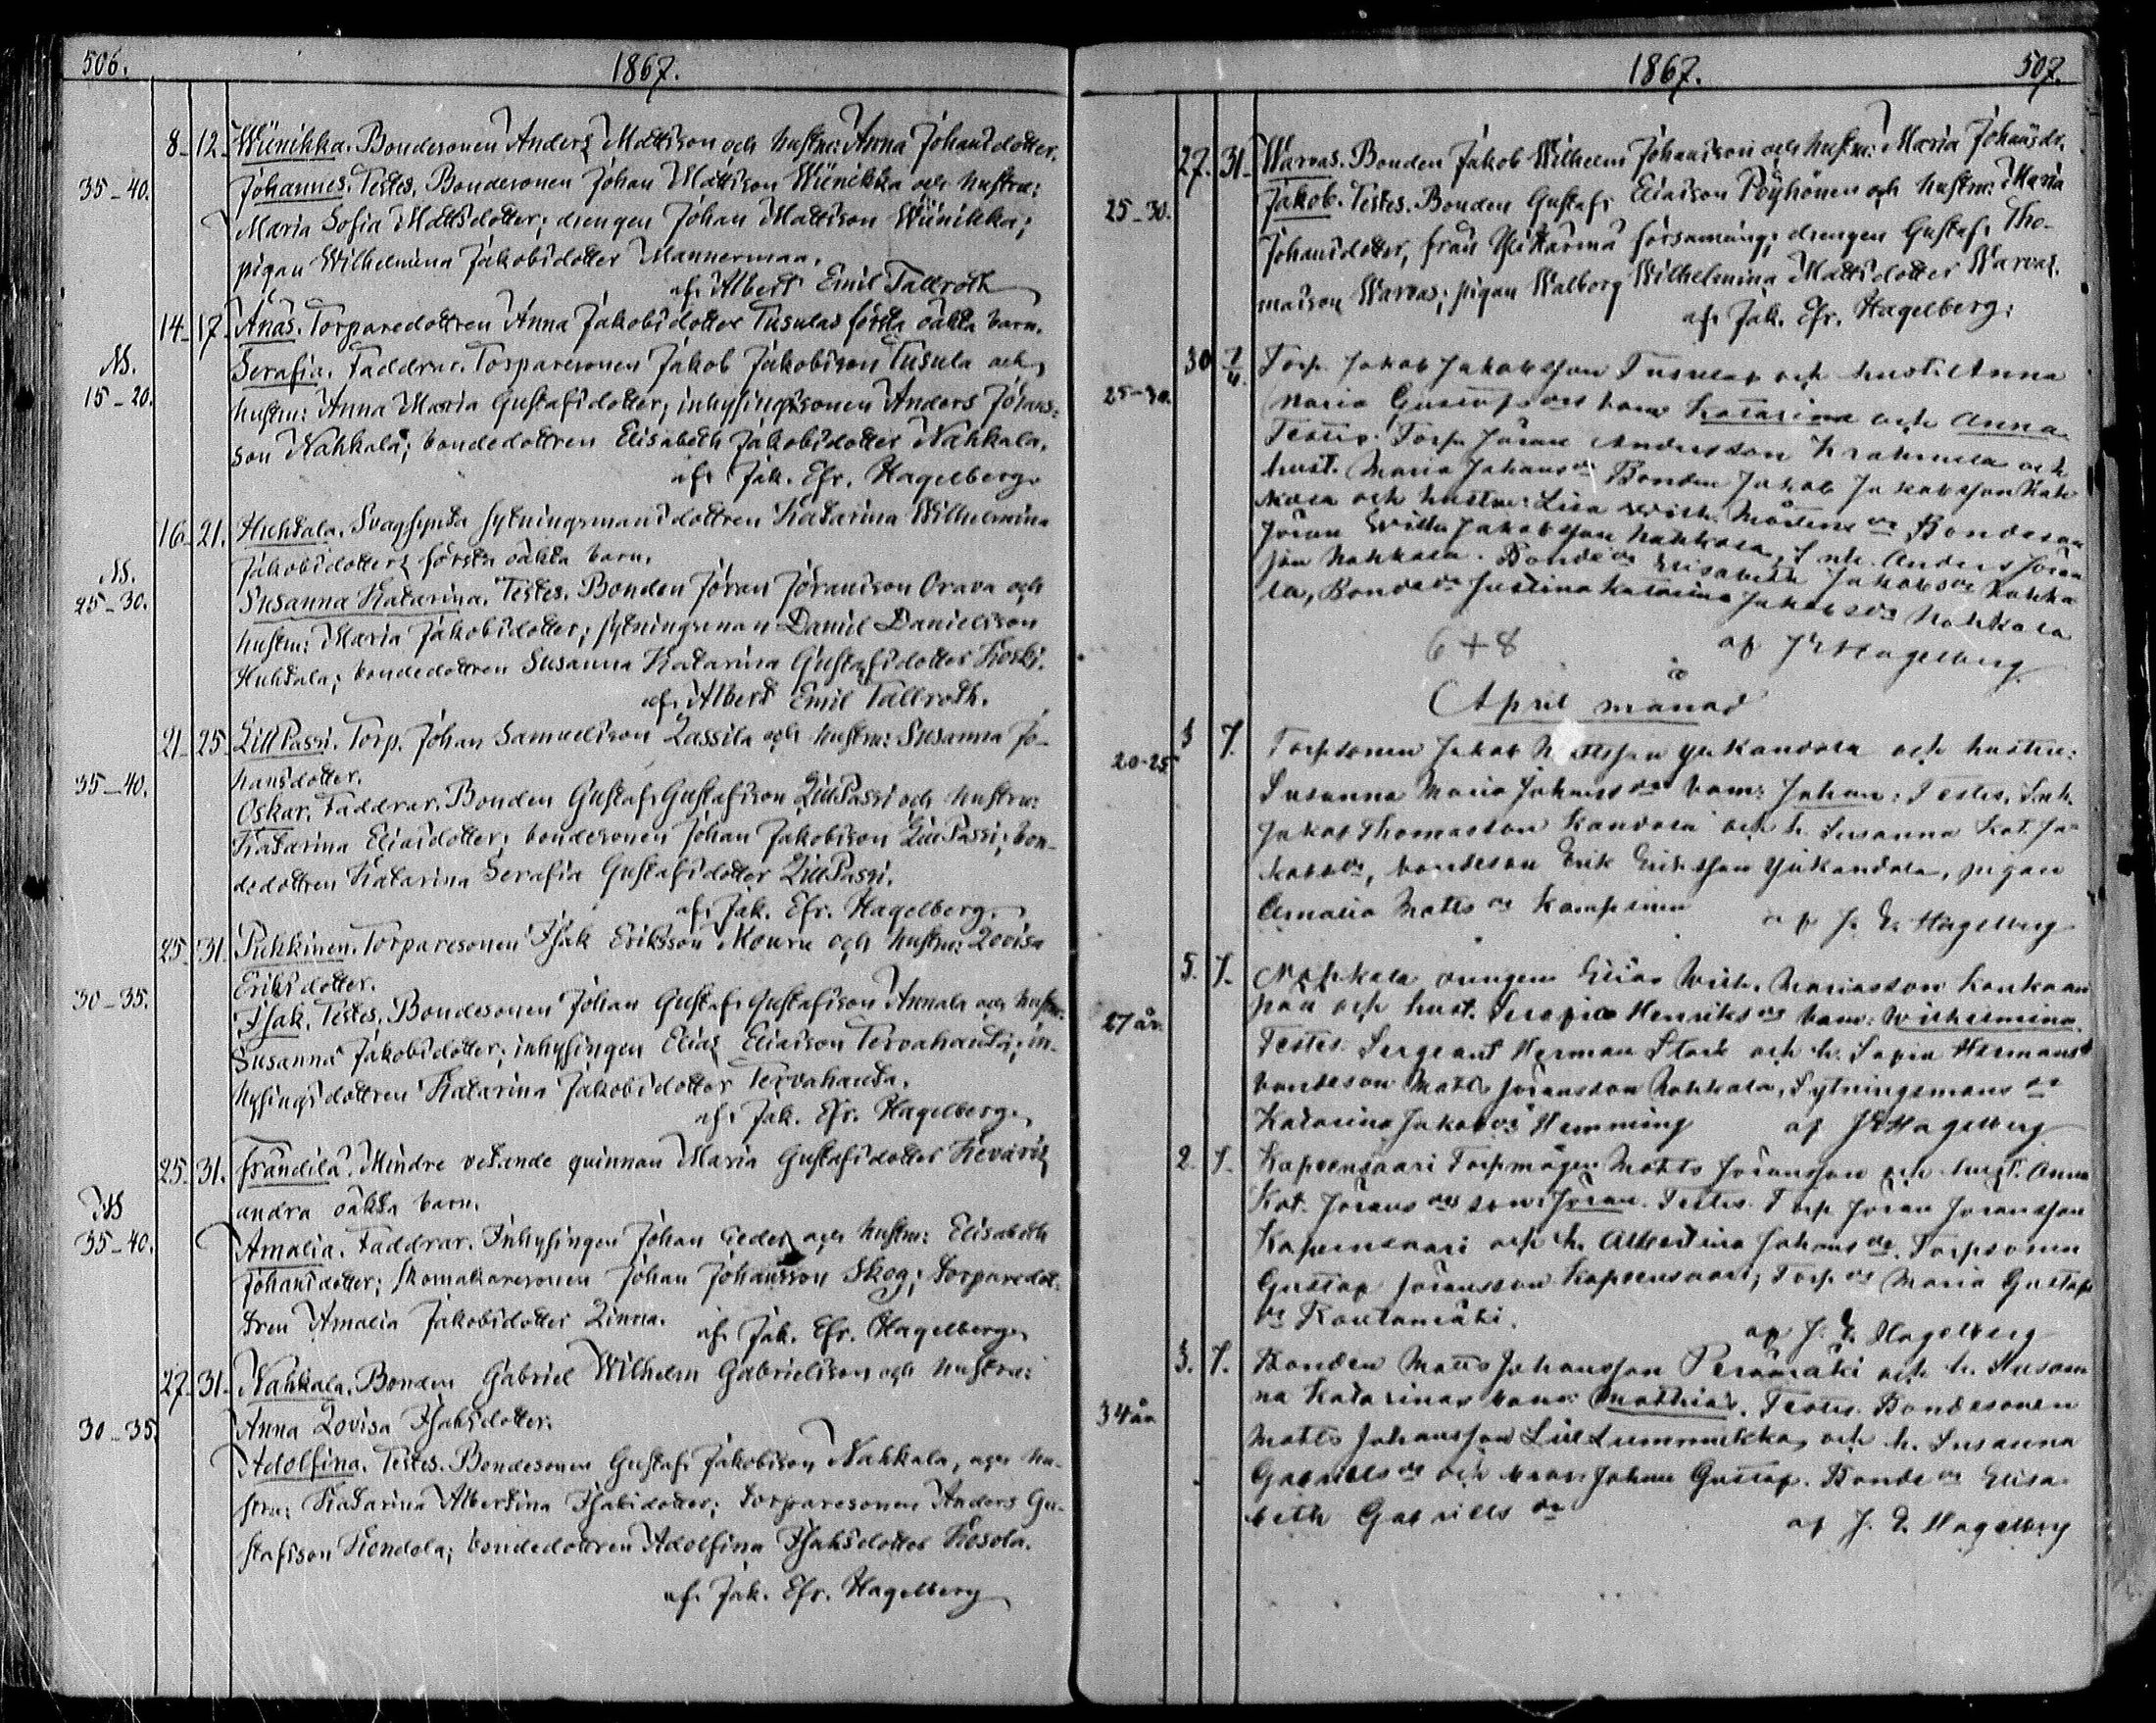 506.
1867.
8-12. Wiinikka. Bondesonen Anders Mattsson och hustru: Anna Johansdotter.
35-40. Johannes. Testes. Bondesonen Johan Mattsson Wiinikka och hustru:
Maria Sofia Mattsdotter; drengen Johan Mattsson Wiinikka;
pigan Wilhelmina Jakobsdotter Mannermaa.
af. Albert Emil Tallroth
14-17. Ånäs. Torparedottren Anna Jakobsdotter Tusulas första oäkta barn.
Serafia. Faddrar. Torparesonen Jakob Jakobsson Tusula och
15-20. hustru: Anna Maria Gustafsdotter; inhysingssonen Anders Johans-
son Nahkala; bondedottren Elisabeth Jakobsdotter Nahkala.
af. Jak. Efr. Hagelberg.
16-21. Huhtala. Svagsynta sytningsmansdottren Katarina Wilhelmina
Jakobsdotters första oäkta barn.
25-30. Susanna Katarina. Testes. Bonden Jöran Jöransson Orava och
hustru: Maria Jakobsdotter; sytningsman Daniel Danielsson
Huhtala; bondedottren Susanna Katarina Gustafsdotter Koski.
af. Albert Emil Tallroth.
21-25. LillPassi. Torp. Johan Samuelsson Lassila och hustru: Susanna Jo-
hansdotter.
35-40. Oskar. Faddrar. Bonden Gustaf Gustafsson LillPassi och hustru:
Katarina Eliasdotter; bondesonen Johan Jakobsson LillPassi; bon-
dedottren Katarina Serafia Gustafsdotter LillPassi.
af. Jak. Efr. Hagelberg.
25-31. Puhkinen. Torparesonen Isak Eriksson Mouru och hustru: Lovisa
Eriksdotter.
30-35. Isak. Testes. Bondesonen Johan Gustaf Gustafsson Annala och hustru:
Susanna Jakobsdotter; inhysingen Elias Eliasson Tervahauta; in-
hysingsdottren Katarina Jakobsdotter Tervahauta.
af. Jak. Efr. Hagelberg.
25-31. Frändilä. Mindre vetande quinnan Maria Gustafsdotter Keväris
andra oäkta barn.
35-40. Amalia. Faddrar. Inhysingen Johan Ceder och hustru: Elisabeth
Johansdotter; skomakaresonen Johan Johansson Skog; torparedot-
tren Amalia Jakobsdotter Linna.
af. Jak. Efr. Hagelberg.
27-31. Nahkala. Bonden Gabriel Wilhelm Gabrielsson och hustru:
30-35. Anna Lovisa Isaksdotter.
Adolfina. Testes. Bondesonen Gustaf Jakobsson Nahkala, och hu-
stru: Katarina Albertina Isaksdotter; torparesonen Anders Gu-
stafsson Kondola; bondedottren Adolfina Isaksdotter Kosola.
af. Jak. Efr. Hagelberg
1867.
507.
27. 31. Warvas. Bonden Jakob Wilhelm Johansson och hustru: Maria Johansdr.
25-30. Jakob. Testes. Bonden Gustaf Eliasson Pöyhönen och hustru: Maria
Johansdotter, från församling; drengen Gustaf Tho-
masson Warvas; pigan Walborg Wilhelmina Mattsdotter Warvas.
af. Jak. Efr. Hagelberg.
30 1/4. Torp. Jakob Jakobsson Tusulas och hust. Anna
25-30. Maria Gustafs drs barn Katarina och Anna.
Testes. Torp. Jöran Andersson och
hust. Maria Johans dr Bonden Jakob Jakobsson Nah
kala och hustru: Lisa Wilh. Mårtens dr Bondeson
Jöran Wilh. Jakobsson Nahkala, Inh. Anders Jöran
son Nahkala. Bonde dr Elisabeth Jakobs dr Nahka
la, Bonde dr Justina Katarina Jakobs dr Nahkala
6+8
af J E Hagelberg
April månad
3 7. Torpsonen Jakob Mattsson Yli Kandola och hustru:
20-25 Susanna Maria Johans drs barn: Johan: Testes. Inh.
Jakob Thomasson Kandola och h. Susanna Kat. Ja-
kobs dr, bondeson Erik Eriksson Ylikandola, pigan
Amalia Matts dr Kampinen
af J. E. Hagelberg
5. 7. Nahkala drengen Elias Wilh. Mariasson Kankaan
27 år. pää och hust. Serafia Henriks drs barn: Wilhelmina.
Testes. Sergeant Herman Stark och h. Sofia Hermans dr
bondeson Matts Jöransson Nahkala, Sytningsmans dr
Katarina Jakobs dr Hemming af J E Hagelberg
2. 7. Kapeensaari Torpmågen Matts Jöransson och hust. Anna
Kat. Jörans drs son: Jöran. Testes. Torp. Jöran Jöransson
Kapeensaari och h. Albertina Johans dr. Torpsonen
Gustaf Jöransson Kapeensaari; Torp. dr Maria Gustafs
dr Rautamäki.
af J. E. Hagelberg
3. 7. Bonden Matts Johansson Perämäki och h. Susan
34 år na Katarinas barn: Mathias. Testes. Bondesonen
Matts Johansson LillLummukka och h. Susanna
Gabriels dr och Johan Gustaf. Bonde dr Elisa-
beth Gabriells dr
af J. E. Hagelberg